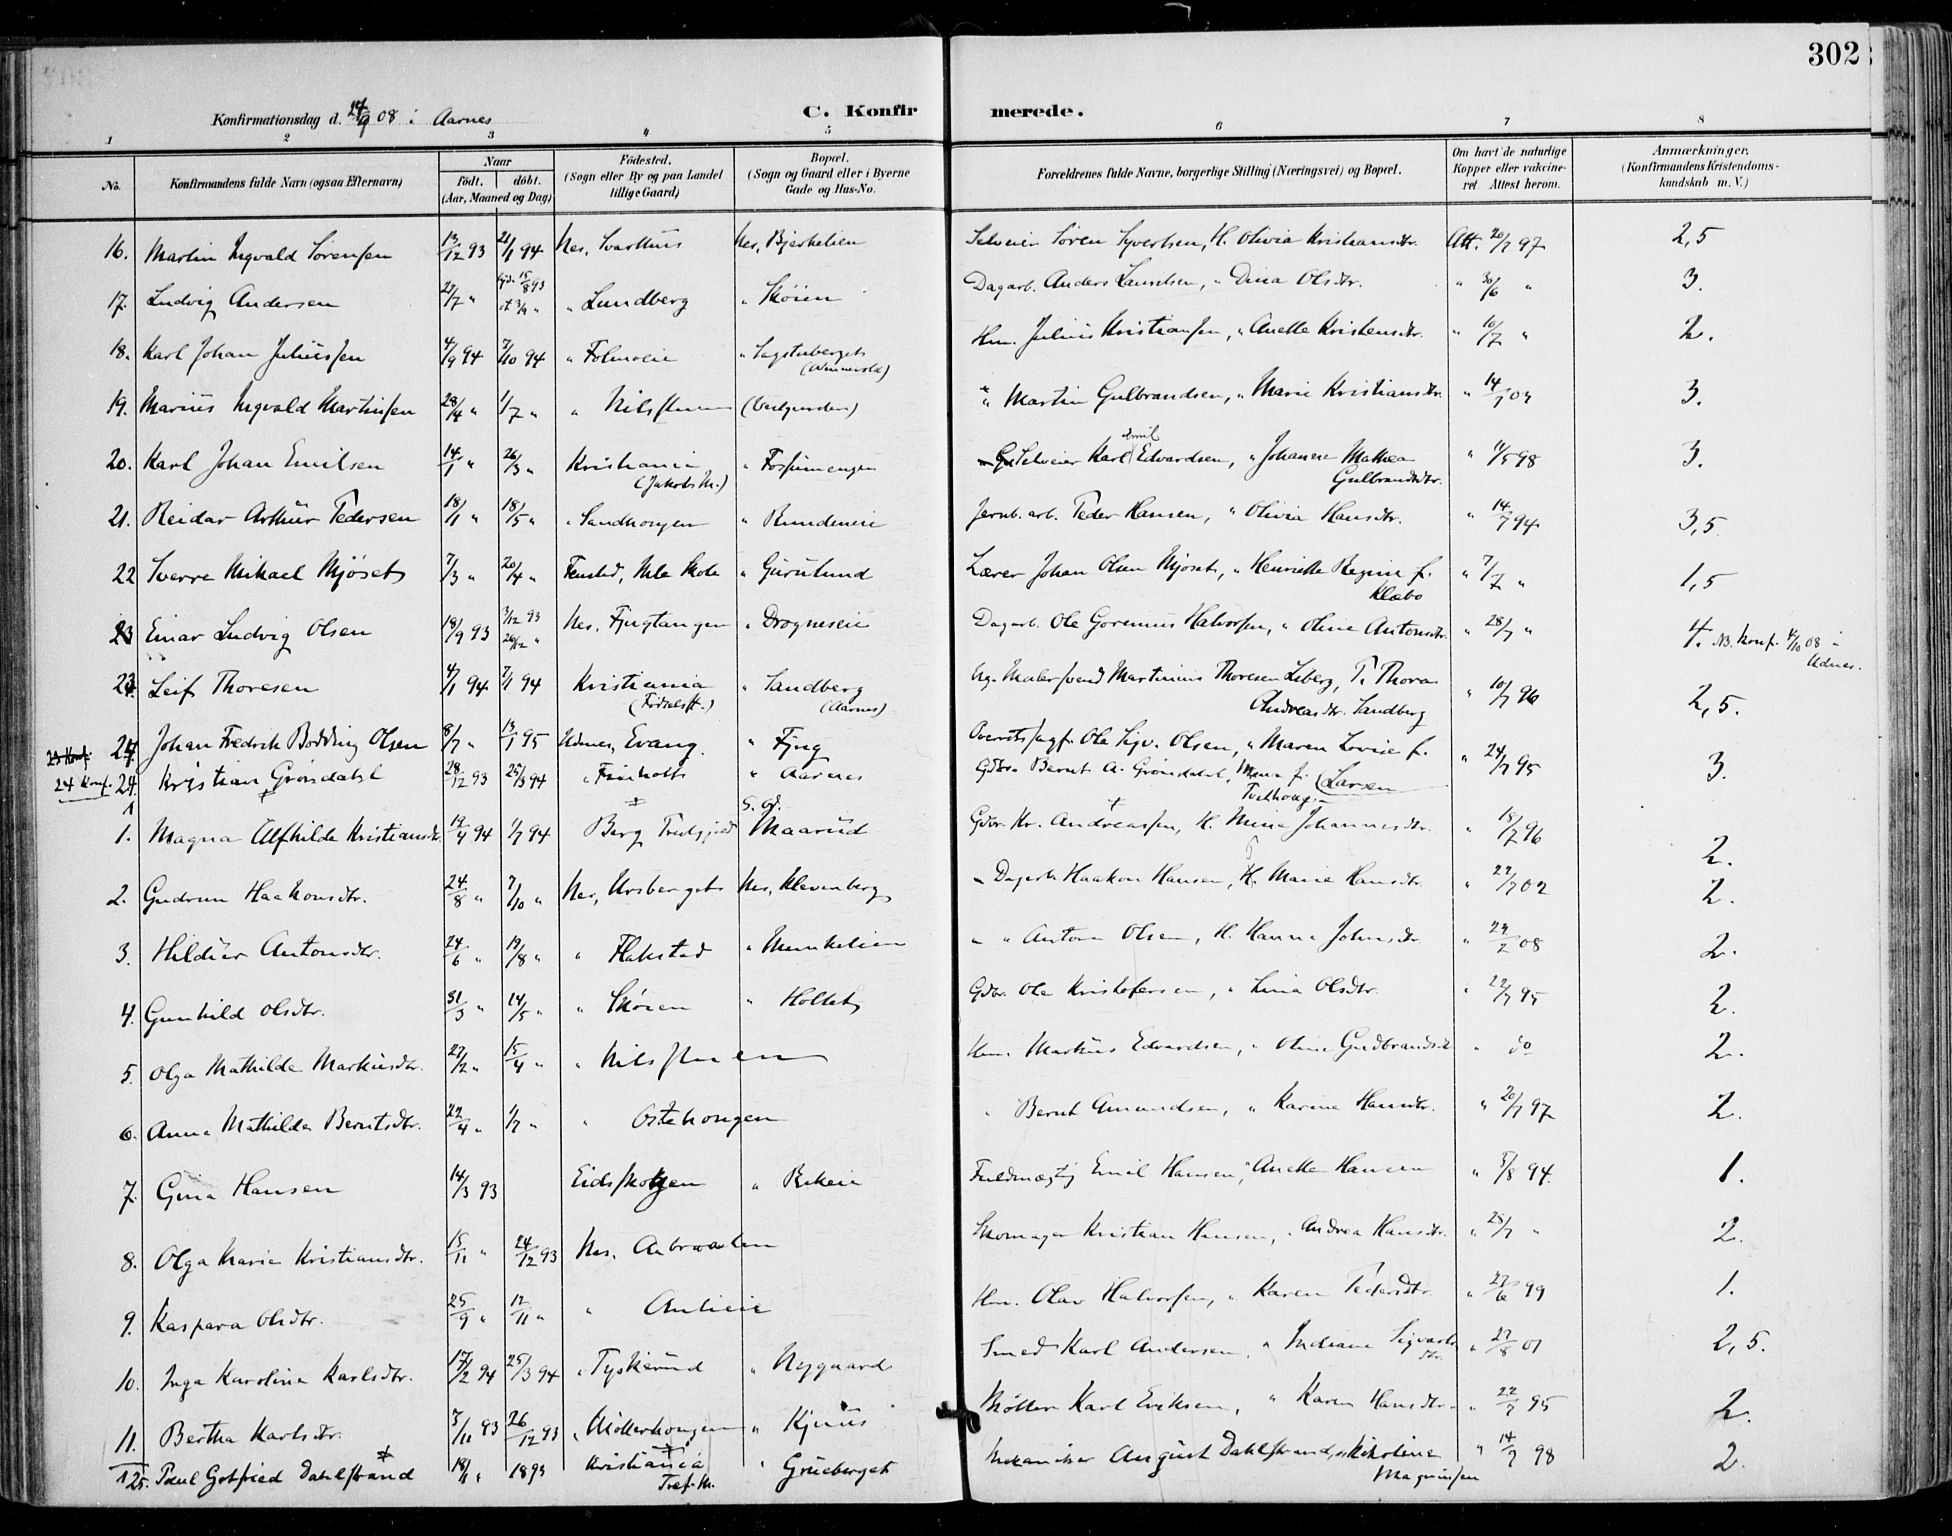 302
Konfirmationsdag d. 14/9 08 i Aarnes
C. Konfir merede.
1 2 3 4 5 6 7 8
No. Konfirmandens fulde Navn (ogsaa Efternavn) Naar født. døbt. (Aar, Maaned og Dag) Fødested. (Sogn eller By og paa Landet tillige Gaard) Bopæl. (Sogn og Gaard eller i Byerne Gade og Hus-No. Forældrenes fulde Navne, borgerlige Stilling (Næringsvei) og Bopæl. Om havt de naturlige Kopper eller vakcineret. Attest herom. Anmærkninger. (Konfirmandens Kristendomskundskab m. V.)
16. Martin Ingvald Sørensen 13/12 93 21/1 94 Nes, Svarthus Nes, Bjerkelien Selveier Søren Syvertsen, H. Olivia Kristiansdtr. Att. 20/7 97 2,5
17. Ludvig Andersen 27/7 " 15/8 93 " Lundberg " Skøien Dagarb. Anders Lauritsen, " Dina Olsdtr. " 30/6 " 3.
18. Karl Johan Juliussen 4/9 94 7/10 94 " Folmoeie " Sagstuberget Hm. Julius Kristiansen, " Anette Kristensdtr. " 10/7 " 2.
19. Marius Ingvald Martinsen 28/4 " 1/7 " " Nilsstuen " Martin Gulbrandsen, " Marie Kristiansdtr. " 14/7 07 3.
20. Karl Johan Emilsen 14/1 " 26/3 " Kristiania (Jakobs M.) " Fossumengen Selveier Karl Emil Edvardsen, " Johanne Mathea Gulbrandsdtr. " 11/5 98 3.
21. Reidar Arthur Pedersen 18/1 " 18/5 " " Sandhougen " Rundeneie Jernb. arb. Peder Hansen, " Olivia Hansdtr. " 14/7 94 3,5
22 Sverre Mikael Mjøset 7/3 " 20/4 " Fenstad, Mle Skole " Gurulund Lærer Johan Olsen Mjøset, " Henriette Regine f. Klæbo " 7/7 " 1,5
23 Einar Ludvig Olsen 18/9 93 3/12 93 26/12 " Nes, Fjugtangen " Drogneseie Dagarb. Ole Gorenius Halvorsen, " Oline Antonsdtr. " 28/7 " 4. NB. Konf. 4/10 08 i Udnes.
23. Leif Thoresen 4/1 94 7/1 94 Kristiania (Fødselsst.) " Sandberg (Aarnes) Ug. Malersvend Martinius Thoresen Leberg, P. Thora Andreasdtr. Sandberg " 10/7 96 2,5.
24. Johan Fredrik Bodding Olsen 8/7 " 13/1 95 Udnes, Evang. " Fjug Ole Sigv. Olsen, " Maren Lovise f. Larsen " 24/7 95 3.
24 Konf. 24. Kristian Grønsdahl 28/12 93 25/3 94 " Frinholt " Aarnes Gdbr. Bernt A. Grønsdahl, Mina f. Tvethoug
1. Magna Alfhilde Kristiansdtr. 19/4 94 1/7 94 Berg S. Od. Maarud Gdbr. Kr. Andreassen, H. Mina Johannesdtr. " 18/7 96 2.
2. Gudrun Haakonsdtr. 24/8 " 7/10 " Nes, Ursberget Nes, Klevenberg " Dagarb. Haakon Hansen, H. Marie Hansdtr. " 22/7 02 2.
3. Hildur Antonsdtr. 24/6 " 19/8 " " Flakstad " Munkelien " " Anton Olsen, H. Hanna Johnsdtr. " 29/2 08 2.
4. Gunhild Olsdtr. 31/3 " 14/5 " " Skøien " Hollet Gdbr. Ole Kristofersen, " Lina Olsdtr. " 22/7 95 2.
5. Olga Mathilde Markusdtr. 27/2 " 15/4 " " Nilsstuen Hm. Markus Edvardsen, " Oline Gudbrandsdtr " do 2.
6. Anna Mathilde Berntsdtr. 22/4 " 1/7 " " Ostehougen " Bernt Amundsen, " Karine Hansdtr. " 20/7 97 2.
7. Gina Hansen 14/3 93 Eidskogen " Rekeie Fuldmægtig Emil Hansen, " Anette Hansen " 5/8 94. 1.
8. Olga Marie Kristiansdtr. 15/11 " 24/12 93 Nes, Aabraaten Skomager Kristian Hansen, " Andrea Hansdtr. " 28/7 " 2.
9. Kaspara Olsdtr. 25/9 " 12/11 " " Aulieie Hm. Olav Halvorsen, " Karen Pedersdtr. " 27/6 99 1.
10. Inga Karoline Karlsdtr. 17/2 94 25/3 94 " Tyskerud " Nygaard Smed Karl Andersen, " Indiane Sigvartsdtr. " 27/8 01 2,5.
11. Bertha Karlsdtr. 5/11 93 26/12 93 " Møllerhougen " Kjuus Møller Karl Eriksen, " Karen Hansdtr. " 22/7 95 2.
25. Paul Gotfried Dahlstrand 18/1 " 1893 Kristiania Tref. M. " Grueberget Mekaniker August Dahlstrand, Nikoline Magnussen " 14/7 98 2.